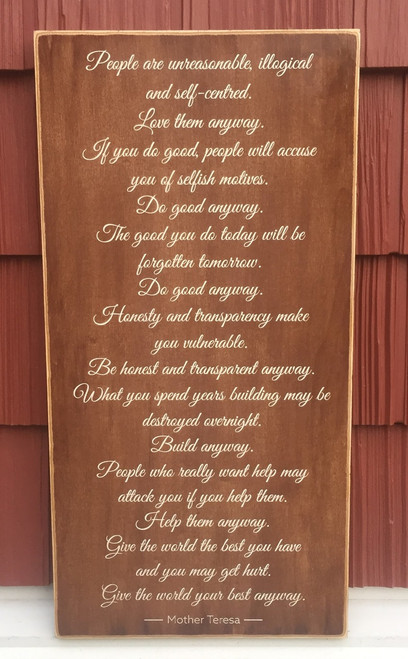 People are unreasonable, illogical
and self-centred.
Love them anyway.
If you do good, people will accuse
you of selfish motives.
Do good anyway.
The good you do today will be
forgotten tomorrow.
Do good anyway.
Honesty and transparency make
you vulnerable.
Be honest and transparent anyway.
What you spend years building may be
destroyed overnight.
Build anyway.
People who really want help may
attack you if you help them.
Help them anyway.
Give the world the best you have
and you may get hurt.
Give the world your best anyway.
— Mother Teresa —